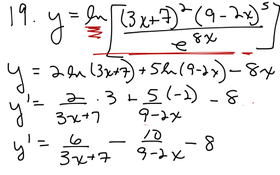 19. y = ln [ (3x+7)² (9-2x)⁵ / e^(8x) ]
y = 2 ln(3x+7) + 5 ln(9-2x) - 8x
y' = 2/(3x+7) · 3 + 5/(9-2x) (-2) - 8
y' = 6/(3x+7) - 10/(9-2x) - 8